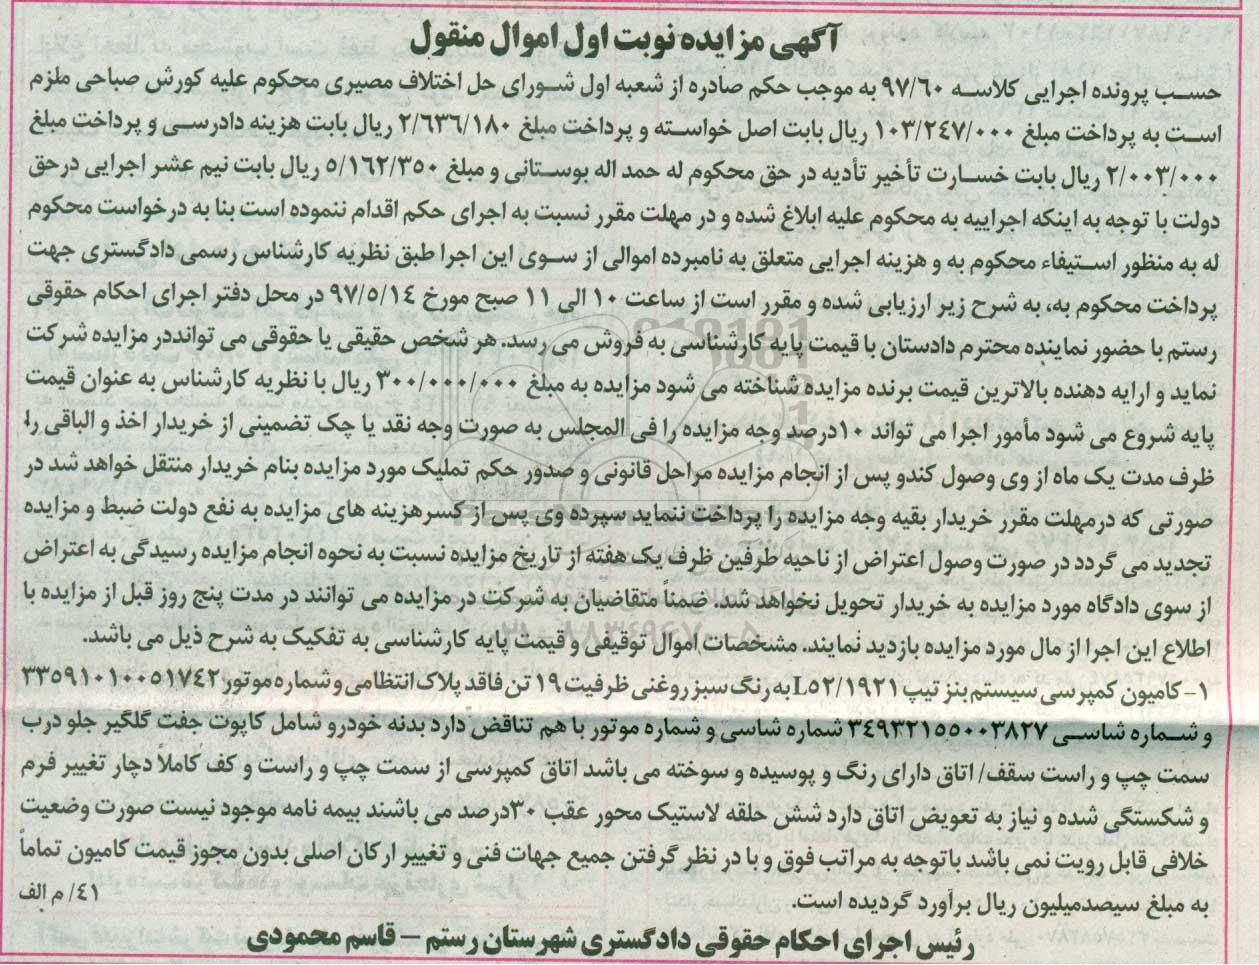 آگهی مزایده نوبت اول اموال منقول
حسب پرونده اجرایی کلاسه ۹۷/۶۰ به موجب حکم صادره از شعبه اول شورای حل اختلاف مصیری محکوم علیه کورش صباحی ملزم
است به پرداخت مبلغ ۱۰۳/۲۴۷/۰۰۰ ریال بابت اصل خواسته و پرداخت مبلغ ۲/۶۳۶/۱۸۰ ریال بابت هزینه دادرسی و پرداخت مبلغ
۲/۰۰۳/۰۰۰ ریال بابت خسارت تأخیر تأدیه در حق محکوم له حمد اله بوستانی و مبلغ ۵/۱۶۲/۳۵۰ ریال بابت نیم عشر اجرایی درحق
دولت با توجه به اینکه اجراییه به محکوم علیه ابلاغ شده و در مهلت مقرر نسبت به اجرای حکم اقدام ننموده است بنا به درخواست محکوم
له به منظور استیفاء محکوم به و هزینه اجرایی متعلق به نامبرده اموالی از سوی این اجرا طبق نظریه کارشناس رسمی دادگستری جهت
پرداخت محکوم به، به شرح زیر ارزیابی شده و مقرر است از ساعت ۱۰ الی ۱۱ صبح مورخ ۹۷/۵/۱۴ در محل دفتر اجرای احکام حقوقی
رستم با حضور نماینده محترم دادستان با قیمت پایه کارشناسی به فروش می رسد. هر شخص حقیقی یا حقوقی می توانددر مزایده شرکت
نماید و ارایه دهنده بالاترین قیمت برنده مزایده شناخته می شود مزایده به مبلغ ۳۰۰/۰۰۰/۰۰۰ ریال با نظریه کارشناس به عنوان قیمت
پایه شروع می شود مأمور اجرا می تواند ۱۰درصد وجه مزایده را فی المجلس به صورت وجه نقد یا چک تضمینی از خریدار اخذ و الباقی را،
ظرف مدت یک ماه از وی وصول کندو پس از انجام مزایده مراحل قانونی و صدور حکم تملیک مورد مزایده بنام خریدار منتقل خواهد شد در
صورتی که درمهلت مقرر خریدار بقیه وجه مزایده را پرداخت ننماید سپرده وی پس از کسرهزینه های مزایده به نفع دولت ضبط و مزایده
تجدید می گردد در صورت وصول اعتراض از ناحیه طرفین ظرف یک هفته از تاریخ مزایده نسبت به نحوه انجام مزایده رسیدگی به اعتراض
از سوی دادگاه مورد مزایده به خریدار تحویل نخواهد شد. ضمناً متقاضیان به شرکت در مزایده می توانند در مدت پنج روز قبل از مزایده با
اطلاع این اجرا از مال مورد مزایده بازدید نمایند. مشخصات اموال توقیفی و قیمت پایه کارشناسی به تفکیک به شرح ذیل می باشد.
۱- کامیون کمپرسی سیستم بنز تیپ L۵۲/۱۹۲۱ به رنگ سبز روغنی ظرفیت ۱۹ تن فاقد پلاک انتظامی و شماره موتور ۳۳۵۹۱۰۱۰۰۵۱۷۴۲
و شماره شاسی ۳۴۹۳۲۱۵۵۰۰۳۸۲۷ شماره شاسی و شماره موتور با هم تناقض دارد بدنه خودرو شامل کاپوت جفت گلگیر جلو درب
سمت چپ و راست سقف/ اتاق دارای رنگ و پوسیده و سوخته می باشد اتاق کمپرسی از سمت چپ و راست و کف کاملاً دچار تغییر فرم
و شکستگی شده و نیاز به تعویض اتاق دارد شش حلقه لاستیک محور عقب ۳۰درصد می باشند بیمه نامه موجود نیست صورت وضعیت
خلافی قابل رویت نمی باشد باتوجه به مراتب فوق و با در نظر گرفتن جمیع جهات فنی و تغییر ارکان اصلی بدون مجوز قیمت کامیون تماماً
به مبلغ سیصدمیلیون ریال برآورد گردیده است.
۴۱/ م الف
رئیس اجرای احکام حقوقی دادگستری شهرستان رستم – قاسم محمودی